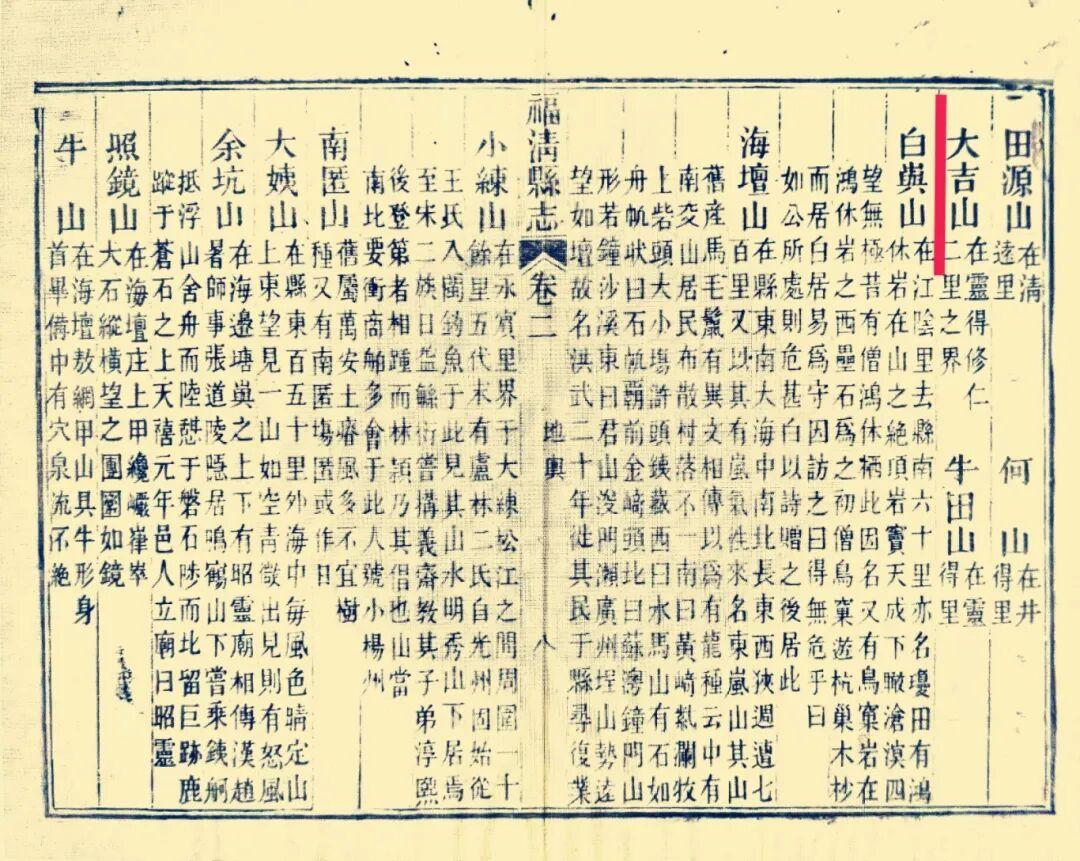 田源山
在清
逺里
何山
在井
得里
大吉山
在靈得修仁
二里之界
牛田山
在靈
得里
白㠘山
在江陰里去縣南六十里亦名瓊田有鴻
休岩在山之絶頂岩竇天成下瞰滄溟四
望無極昔有僧鴻休栖此因名又有鳥窠岩在
鴻休岩之西壘石爲之初僧鳥窠遊杭巢木杪
而居白居易爲守因訪之曰得無危乎曰
如公所處則危甚白以詩贈之後居此
海壇山
在縣東南大海中南北長東西狹週遭七
百里又以其有嵐氣徃來名東嵐山其山
舊産馬毛鬣有異文相傳以爲有龍種云中有
南交山居民布散村落不一南曰黃崎瀾牧
上砦頭大小塲滸頭鋏藏西曰水馬山有石如
舟帆狀曰石帆霸前金崎頭北曰蘇灣鐘門山
形若鐘沙溪東曰君山門瀬廣州埕山勢逺
望如壇故名洪武二十年徙其民于縣尋復業
福清縣志
卷二
地輿
八
小練山
在永賓里界于大練松江之間周圍一十
餘里五代末有盧林二氏自光州固始從
王氏入閩鈎魚于此見其山水明秀山下居焉
至宋二族日益緜衍嘗搆義齋教其子弟淳熙
後登第者相踵而林頴乃其倡也山當
南北要衝商舶多會于此人號小楊州
南匿山
舊屬萬安土瘠風多不宜樹
種又有南匿塲匿或作日
大姨山
在縣東百五十里外海中每風色晴定山
上東望見一山如空青㣲出見則有怒風
余坑山
在海邉塘㠘之上下有昭靈廟相傳漢趙
㫷師事張道陵隱居鳴鶴山下嘗乗鋏舸
抵浮山舍舟而陸憇于磐石陟而比留巨跡鹿
蹤于蒼石之上天禧元年邑人立廟曰昭靈
照鏡山
在海壇庄上甲巉巗峯崒
大石縱橫望之團圞如鏡
牛山
在海壇敖網甲山具牛形身
首畢備中有穴泉流不絶